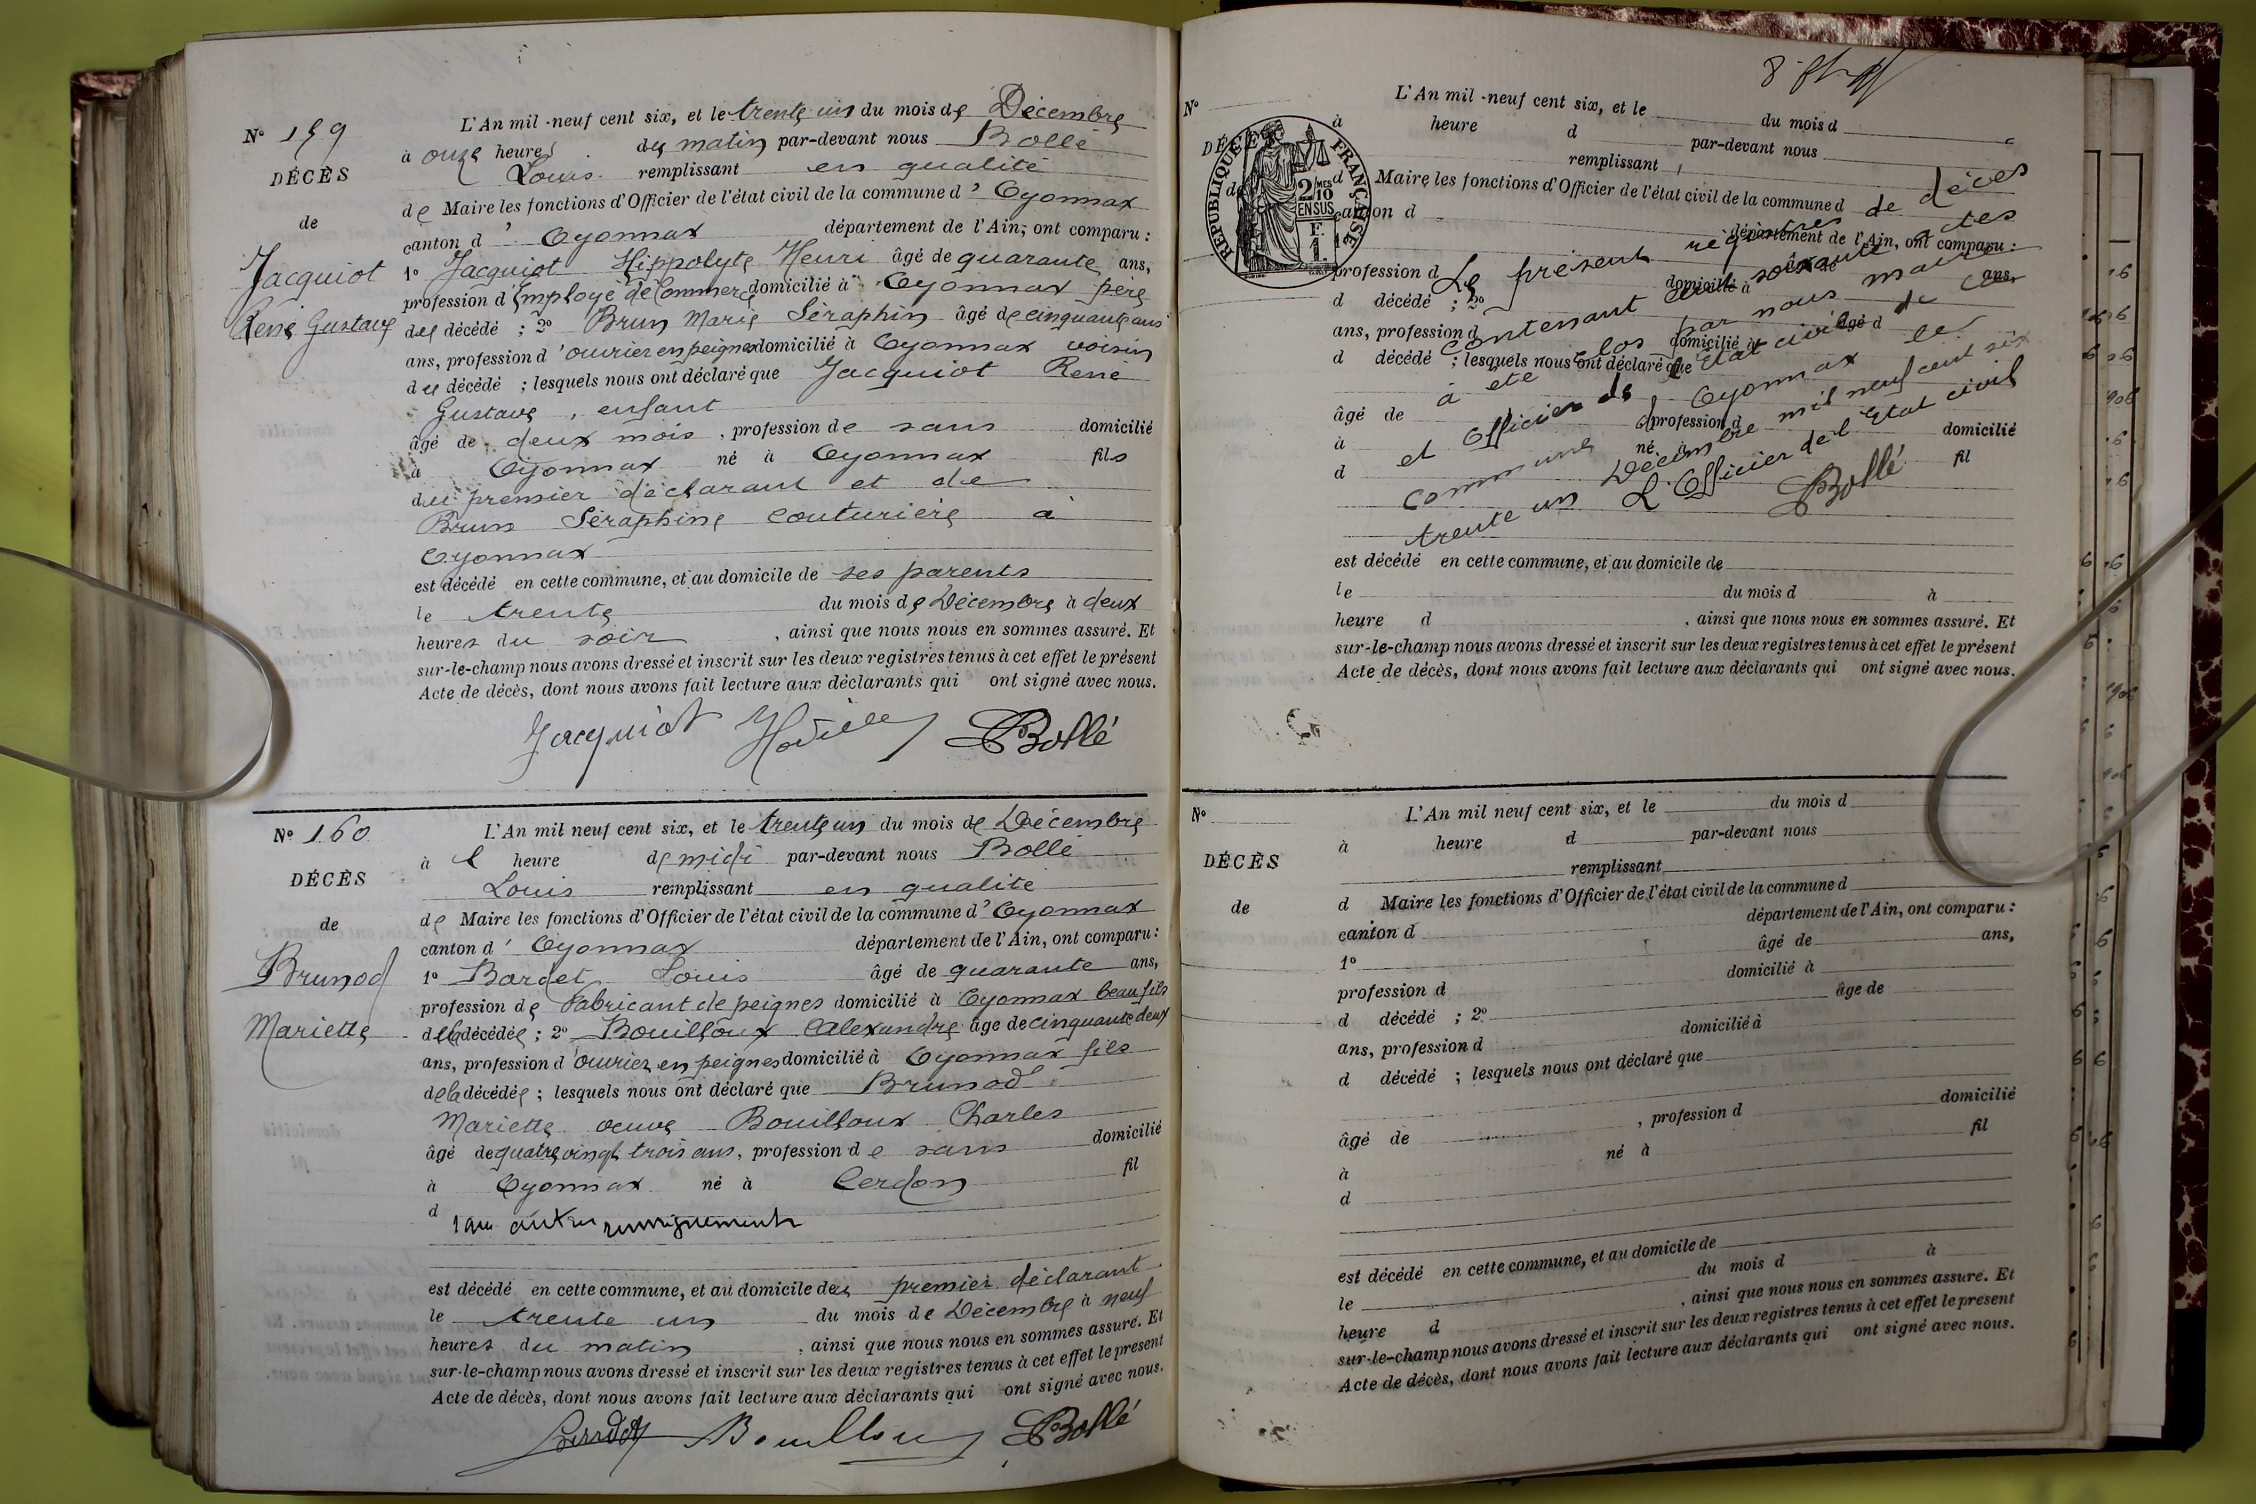 N° 159
DÉCÈS
de
Jacquiot
René Gustave
L'An mil-neuf cent six, et le trente un du mois de Décembre
à onze heures du matin par-devant nous Bollé
Louis remplissant en qualité
de Maire les fonctions d'Officier de l'état civil de la commune d'Oyonnax
canton d'Oyonnax département de l'Ain, ont comparu :
1° Jacquiot Hippolyte Henri âgé de quarante ans,
profession d'Employé de Commerce domicilié à Oyonnax père
du décédé ; 2° Brun Marie Séraphin âgé de cinquante ans
ans, profession d'ouvrier en peignes domicilié à Oyonnax voisin
du décédé ; lesquels nous ont déclaré que Jacquiot René
Gustave, enfant
âgé de deux mois, profession de sans domicilié
à Oyonnax né à Oyonnax fils
du premier déclarant et de
Brun Séraphine couturière à
Oyonnax
est décédé en cette commune, et au domicile de ses parents
le trente du mois de Décembre à deux
heures du soir, ainsi que nous nous en sommes assuré. Et
sur-le-champ nous avons dressé et inscrit sur les deux registres tenus à cet effet le présent
Acte de décès, dont nous avons fait lecture aux déclarants qui ont signé avec nous.
Jacquiot Bollé
N° 160
DÉCÈS
de
Brunod
Mariette
L'An mil neuf cent six, et le trente un du mois de Décembre
à l heure de midi par-devant nous Bollé
Louis remplissant en qualité
de Maire les fonctions d'Officier de l'état civil de la commune d'Oyonnax
canton d'Oyonnax département de l'Ain, ont comparu :
1° Bardet Louis âgé de quarante ans,
profession de Fabricant de peignes domicilié à Oyonnax beau fils
de la décédée ; 2° Bouilloux Alexandre âgé de cinquante deux
ans, profession d'ouvrier en peignes domicilié à Oyonnax fils
de la décédée ; lesquels nous ont déclaré que Brunod
Mariette veuve Bouilloux Charles
âgé de quatre vingt trois ans, profession de sans domicilié
à Oyonnax né à Cerdon fil
d sans autres renseignements
est décédé en cette commune, et au domicile du premier déclarant
le trente un du mois de Décembre à neuf
heures du matin, ainsi que nous nous en sommes assuré. Et
sur-le-champ nous avons dressé et inscrit sur les deux registres tenus à cet effet le présent
Acte de décès, dont nous avons fait lecture aux déclarants qui ont signé avec nous.
Bardet Bouilloux Bollé
N°
DÉCÈS
RÉPUBLIQUE FRANÇAISE
2/10 MES
EN SUS
F.
1.
L'An mil-neuf cent six, et le du mois d
à heure d par-devant nous
remplissant
d Maire les fonctions d'Officier de l'état civil de la commune d
canton d département de l'Ain, ont comparu :
1° âgé de ans,
profession d domicilié à
d décédé ; 2° âgé d
ans, profession d domicilié à
d décédé ; lesquels nous ont déclaré que
âgé de profession d domicilié
à né à fil
d
Le présent registre de décès
contenant cent soixante actes
a été clos par nous maire
et Officier de l'Etat civil de la
commune d'Oyonnax le
trente un Décembre mil neuf cent six
L'Officier de l'Etat civil
Bollé
est décédé en cette commune, et au domicile de
le du mois d à
heure d, ainsi que nous nous en sommes assuré. Et
sur-le-champ nous avons dressé et inscrit sur les deux registres tenus à cet effet le présent
Acte de décès, dont nous avons fait lecture aux déclarants qui ont signé avec nous.
N°
DÉCÈS
de
L'An mil neuf cent six, et le du mois d
à heure d par-devant nous
remplissant
d Maire les fonctions d'Officier de l'état civil de la commune d
canton d département de l'Ain, ont comparu :
1° âgé de ans,
profession d domicilié à
d décédé ; 2° âge de
ans, profession d domicilié à
d décédé ; lesquels nous ont déclaré que
âgé de, profession d domicilié
à né à fil
d
est décédé en cette commune, et au domicile de
le du mois d à
heure d, ainsi que nous nous en sommes assuré. Et
sur-le-champ nous avons dressé et inscrit sur les deux registres tenus à cet effet le présent
Acte de décès, dont nous avons fait lecture aux déclarants qui ont signé avec nous.